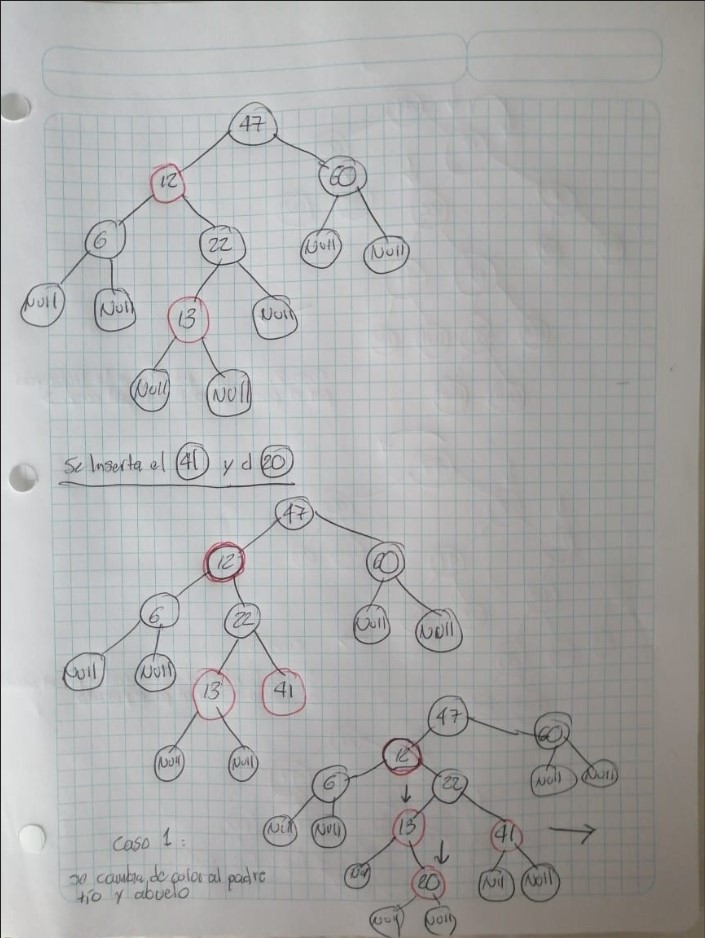 47
12
60
6
22
Null
Null
Null
Null
13
Null
Null
Null
Se Inserta el 41 y el 20
47
12
60
6
22
Null
Null
Null
Null
13
41
Null
Null
47
60
12
Null
Null
6
22
Null
Null
13
41
20
Nil
Null
Null
Null
Caso 1:
se cambia de color al padre
tío y abuelo